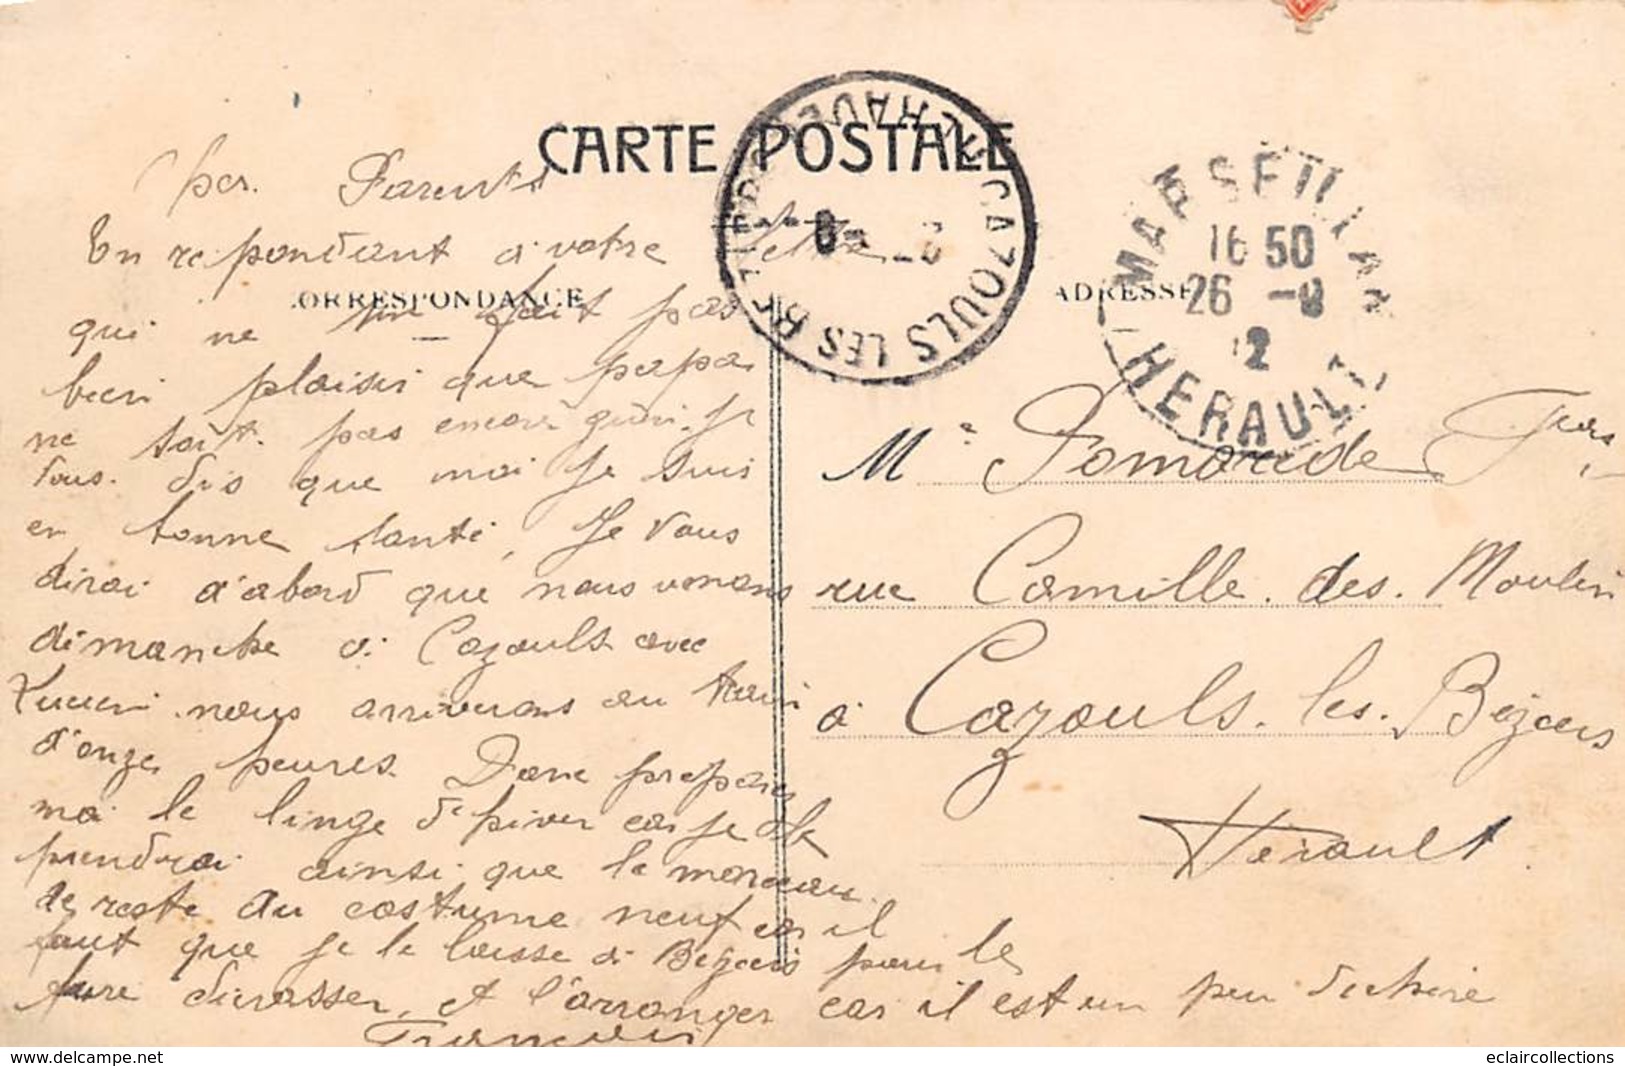 CARTE POSTALE
CORRESPONDANCE
ADRESSE
CAZOULS LES BEZIERS
HERAULT
MARSEILLAN
16 50
26 -8
12
HERAULT
cher. Parents
En repondant a votre lettre
qui ne m'en fait pas
bien plaisir que papa
ne soit pas encore guéri. Je
vous dis que moi je suis
en bonne santé, Je vous
dirai d'abord que nous venons
dimanche à Cazouls avec
nous arriverons au train
d'onze heures. Donc préparez
moi le linge d'hiver car je le
prendrai ainsi que le morceau
de reste du costume neuf car il
faut que je le laisse à Beziers pour le
faire et l'arranger car il est un peu dechiré
François
Me Pomarède Frers
rue Camille. des. Moulin
à Cazouls. les. Beziers
Herault
eclaircollections
www.delcampe.net